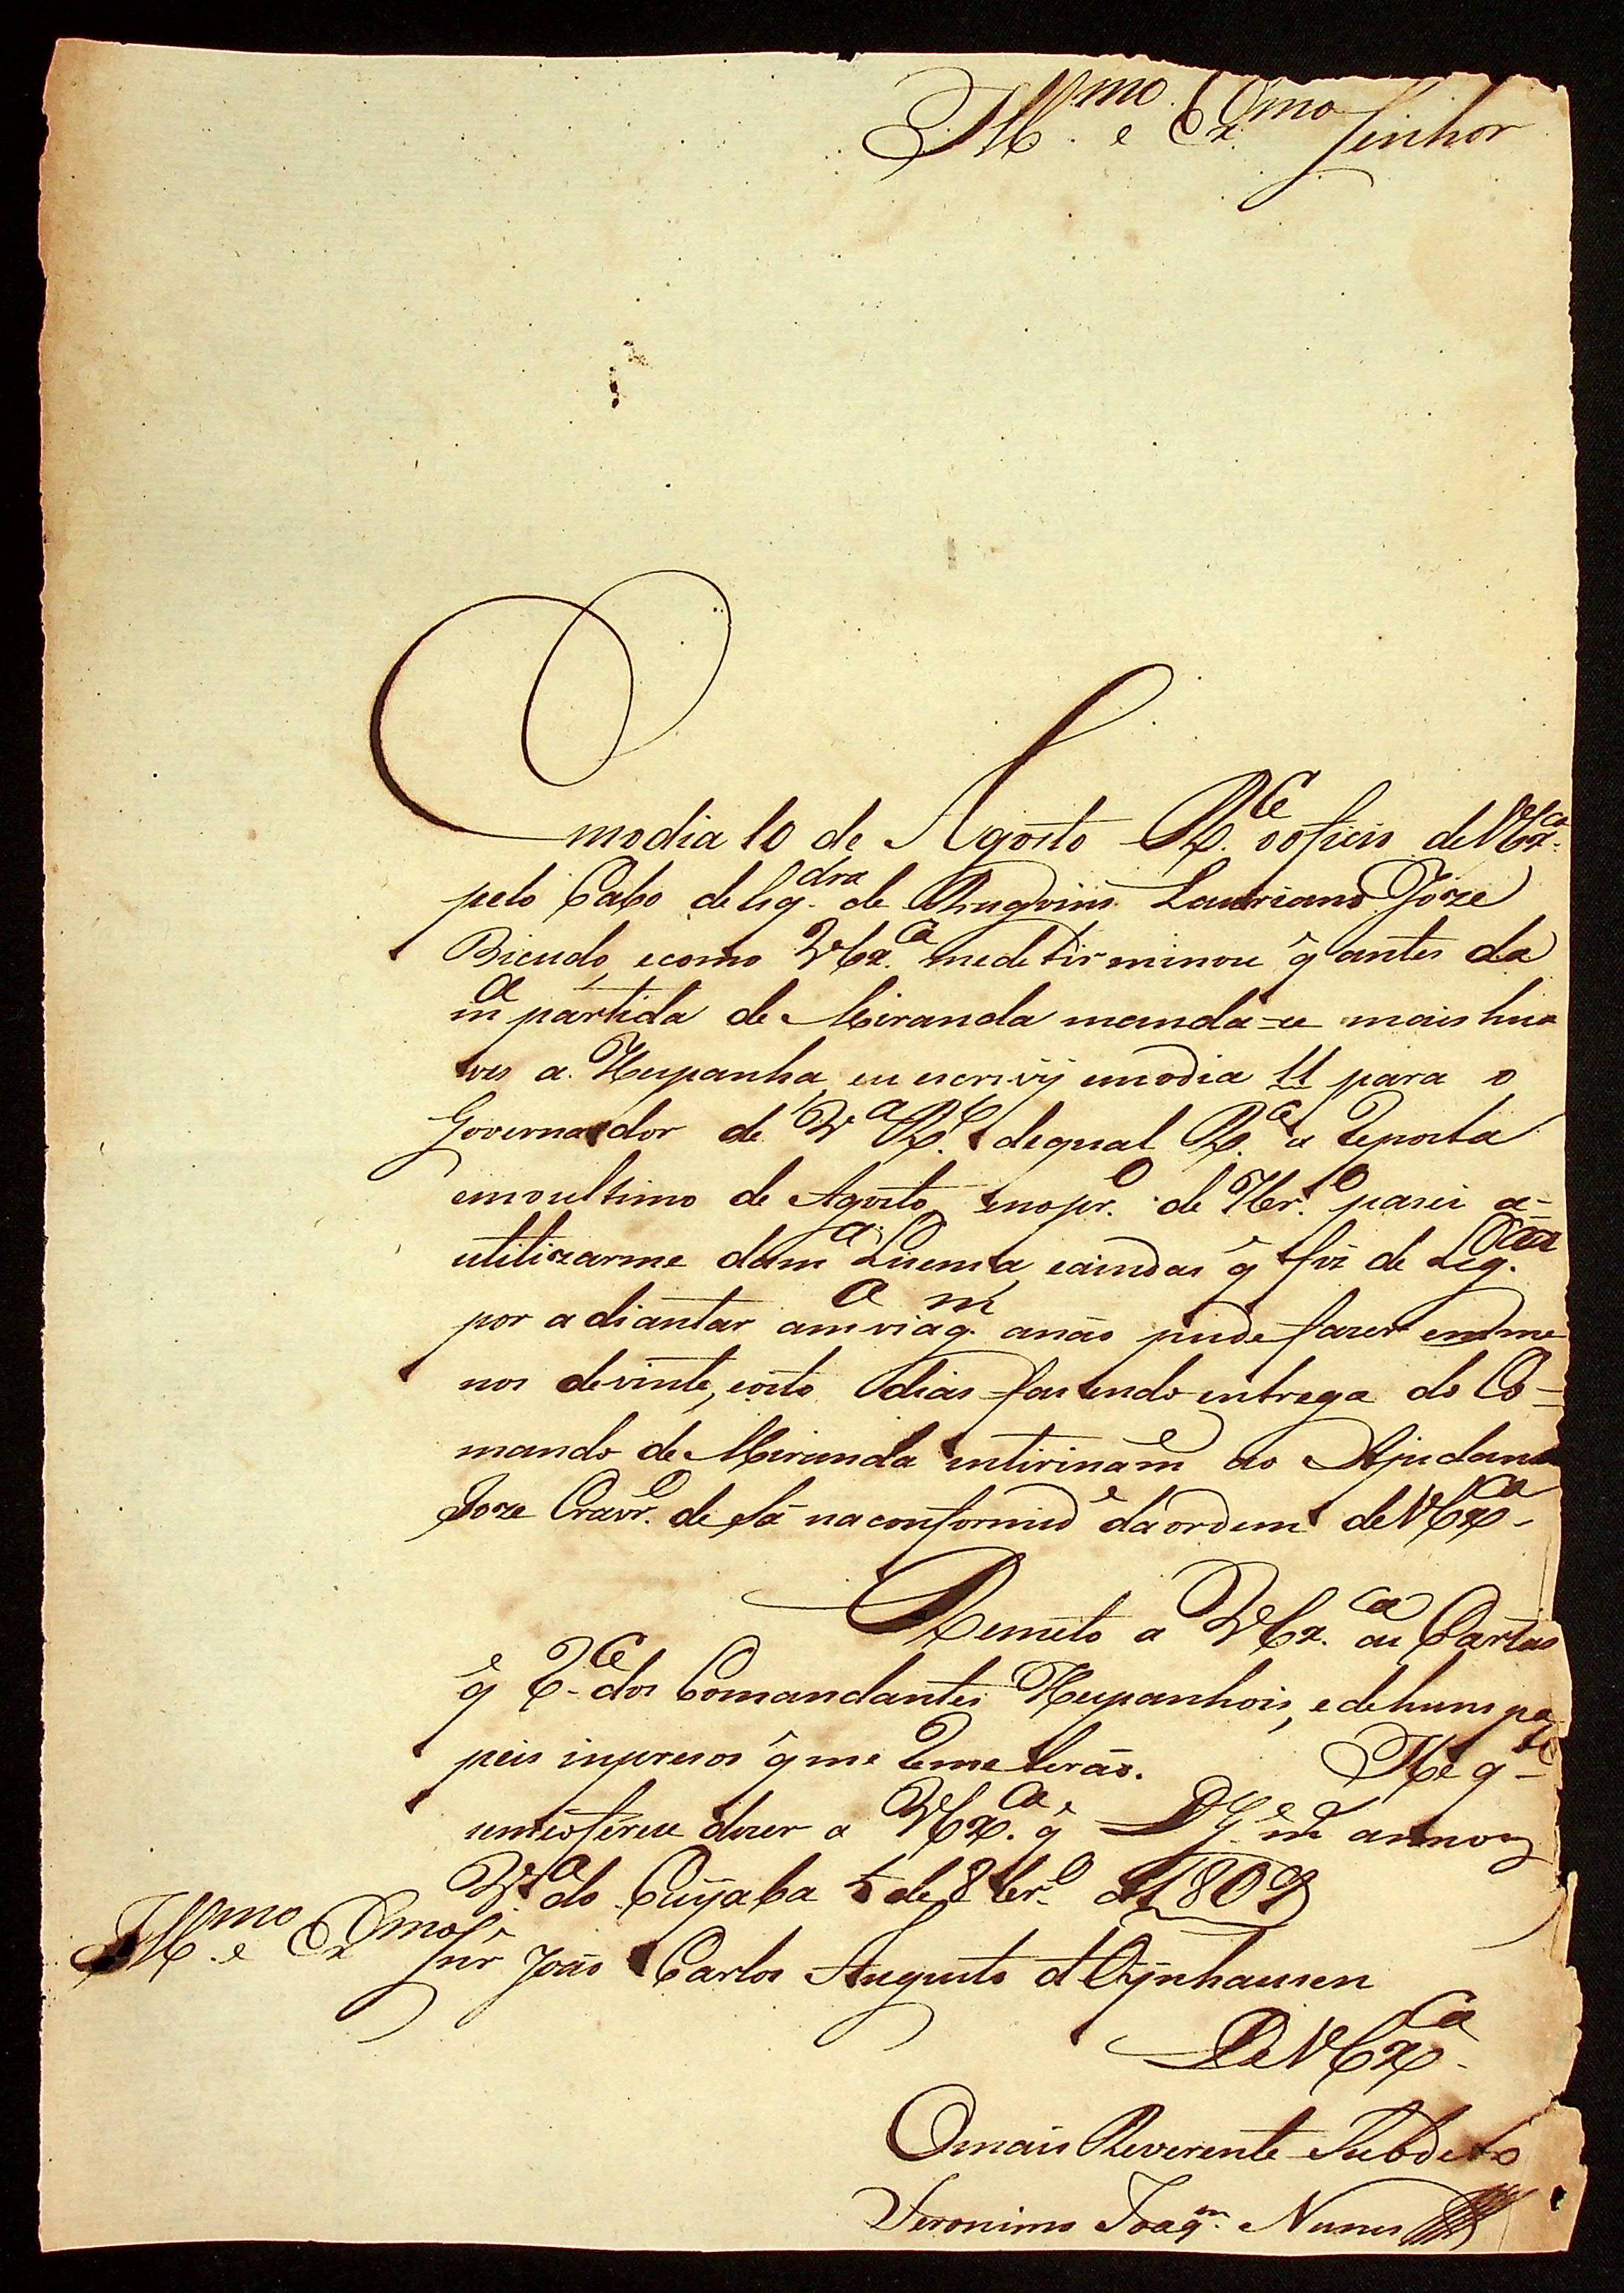 Ill.mo e Ex.mo Senhor
Emodia 10 de Agosto R.ce ooficio deVEx.ca
pelo Cabo deEsq.dra de Lauriano Joze
Bicudo, ecomo VEx.ca medetirminou q̃ antes da
m.a partida de Miranda mandáse mais hua
ves a Hespanha, eu escrivÿ emodia 11 para o
Governador de V.a R.l dequal R.ce a Reposta
emoultimo de Agosto, enopr.o de 7br.o pasei a=
utilizarme dam.a Lisensa, eaindas q̃ fiz de Delig.cas
por adiantar am.a viag.m anão pude fazer em me
nos devinte, eoito dias fazendo entrega do Co=
mando de Miranda intirinam.e ao Ajudante
Joze Cravr.o de Sá naconformid.e daordem deVEx.ca
Remeto a VEx.ca as Cartas
q̃ R.ce dos Comandantes Hespanhois, edehuns pa
peis inpresos q̃ me Remeterão. He q.to
semeoferese dizer a VEx.ca q̃ DG.e m.s annos
V.a do Cuÿaba 4 de 8br.o d1809
Ill.mo e Ex.mo Snr João Carlos Augusto d'Oÿnhausen
DeVEx.ca
Omais Reverente Subdito
Jeronimo Joaq.m Nunes